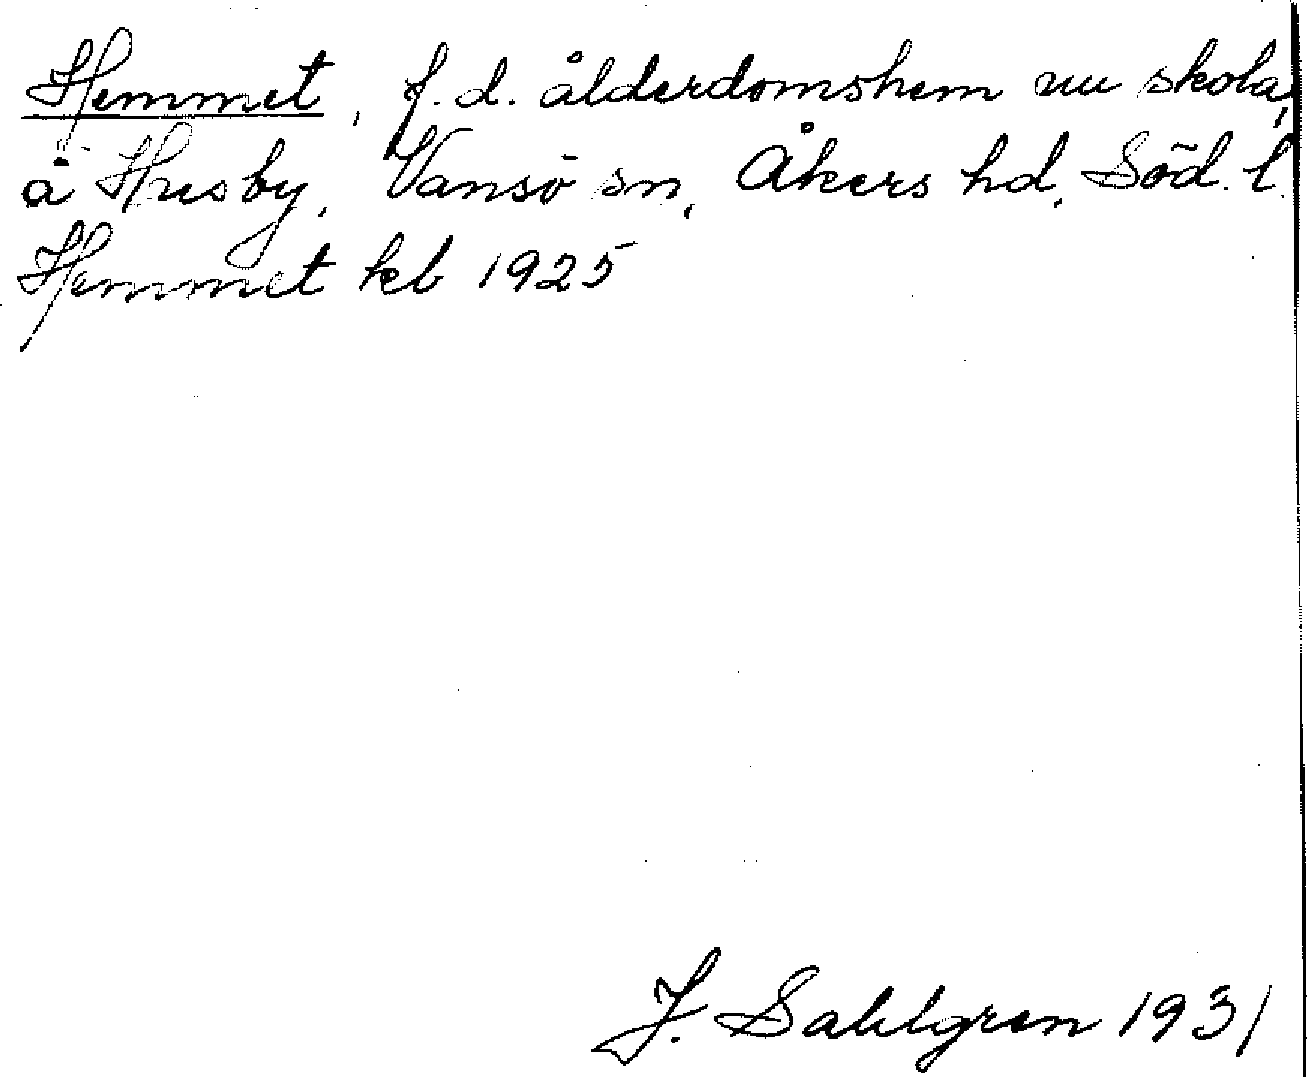 Hemmet, f.d. ålderdomshem nu skola,
å Husby, Vansö sn, Åkers hd, Söd. l.
Hemmet kb 1925
J. Sahlgren 1931